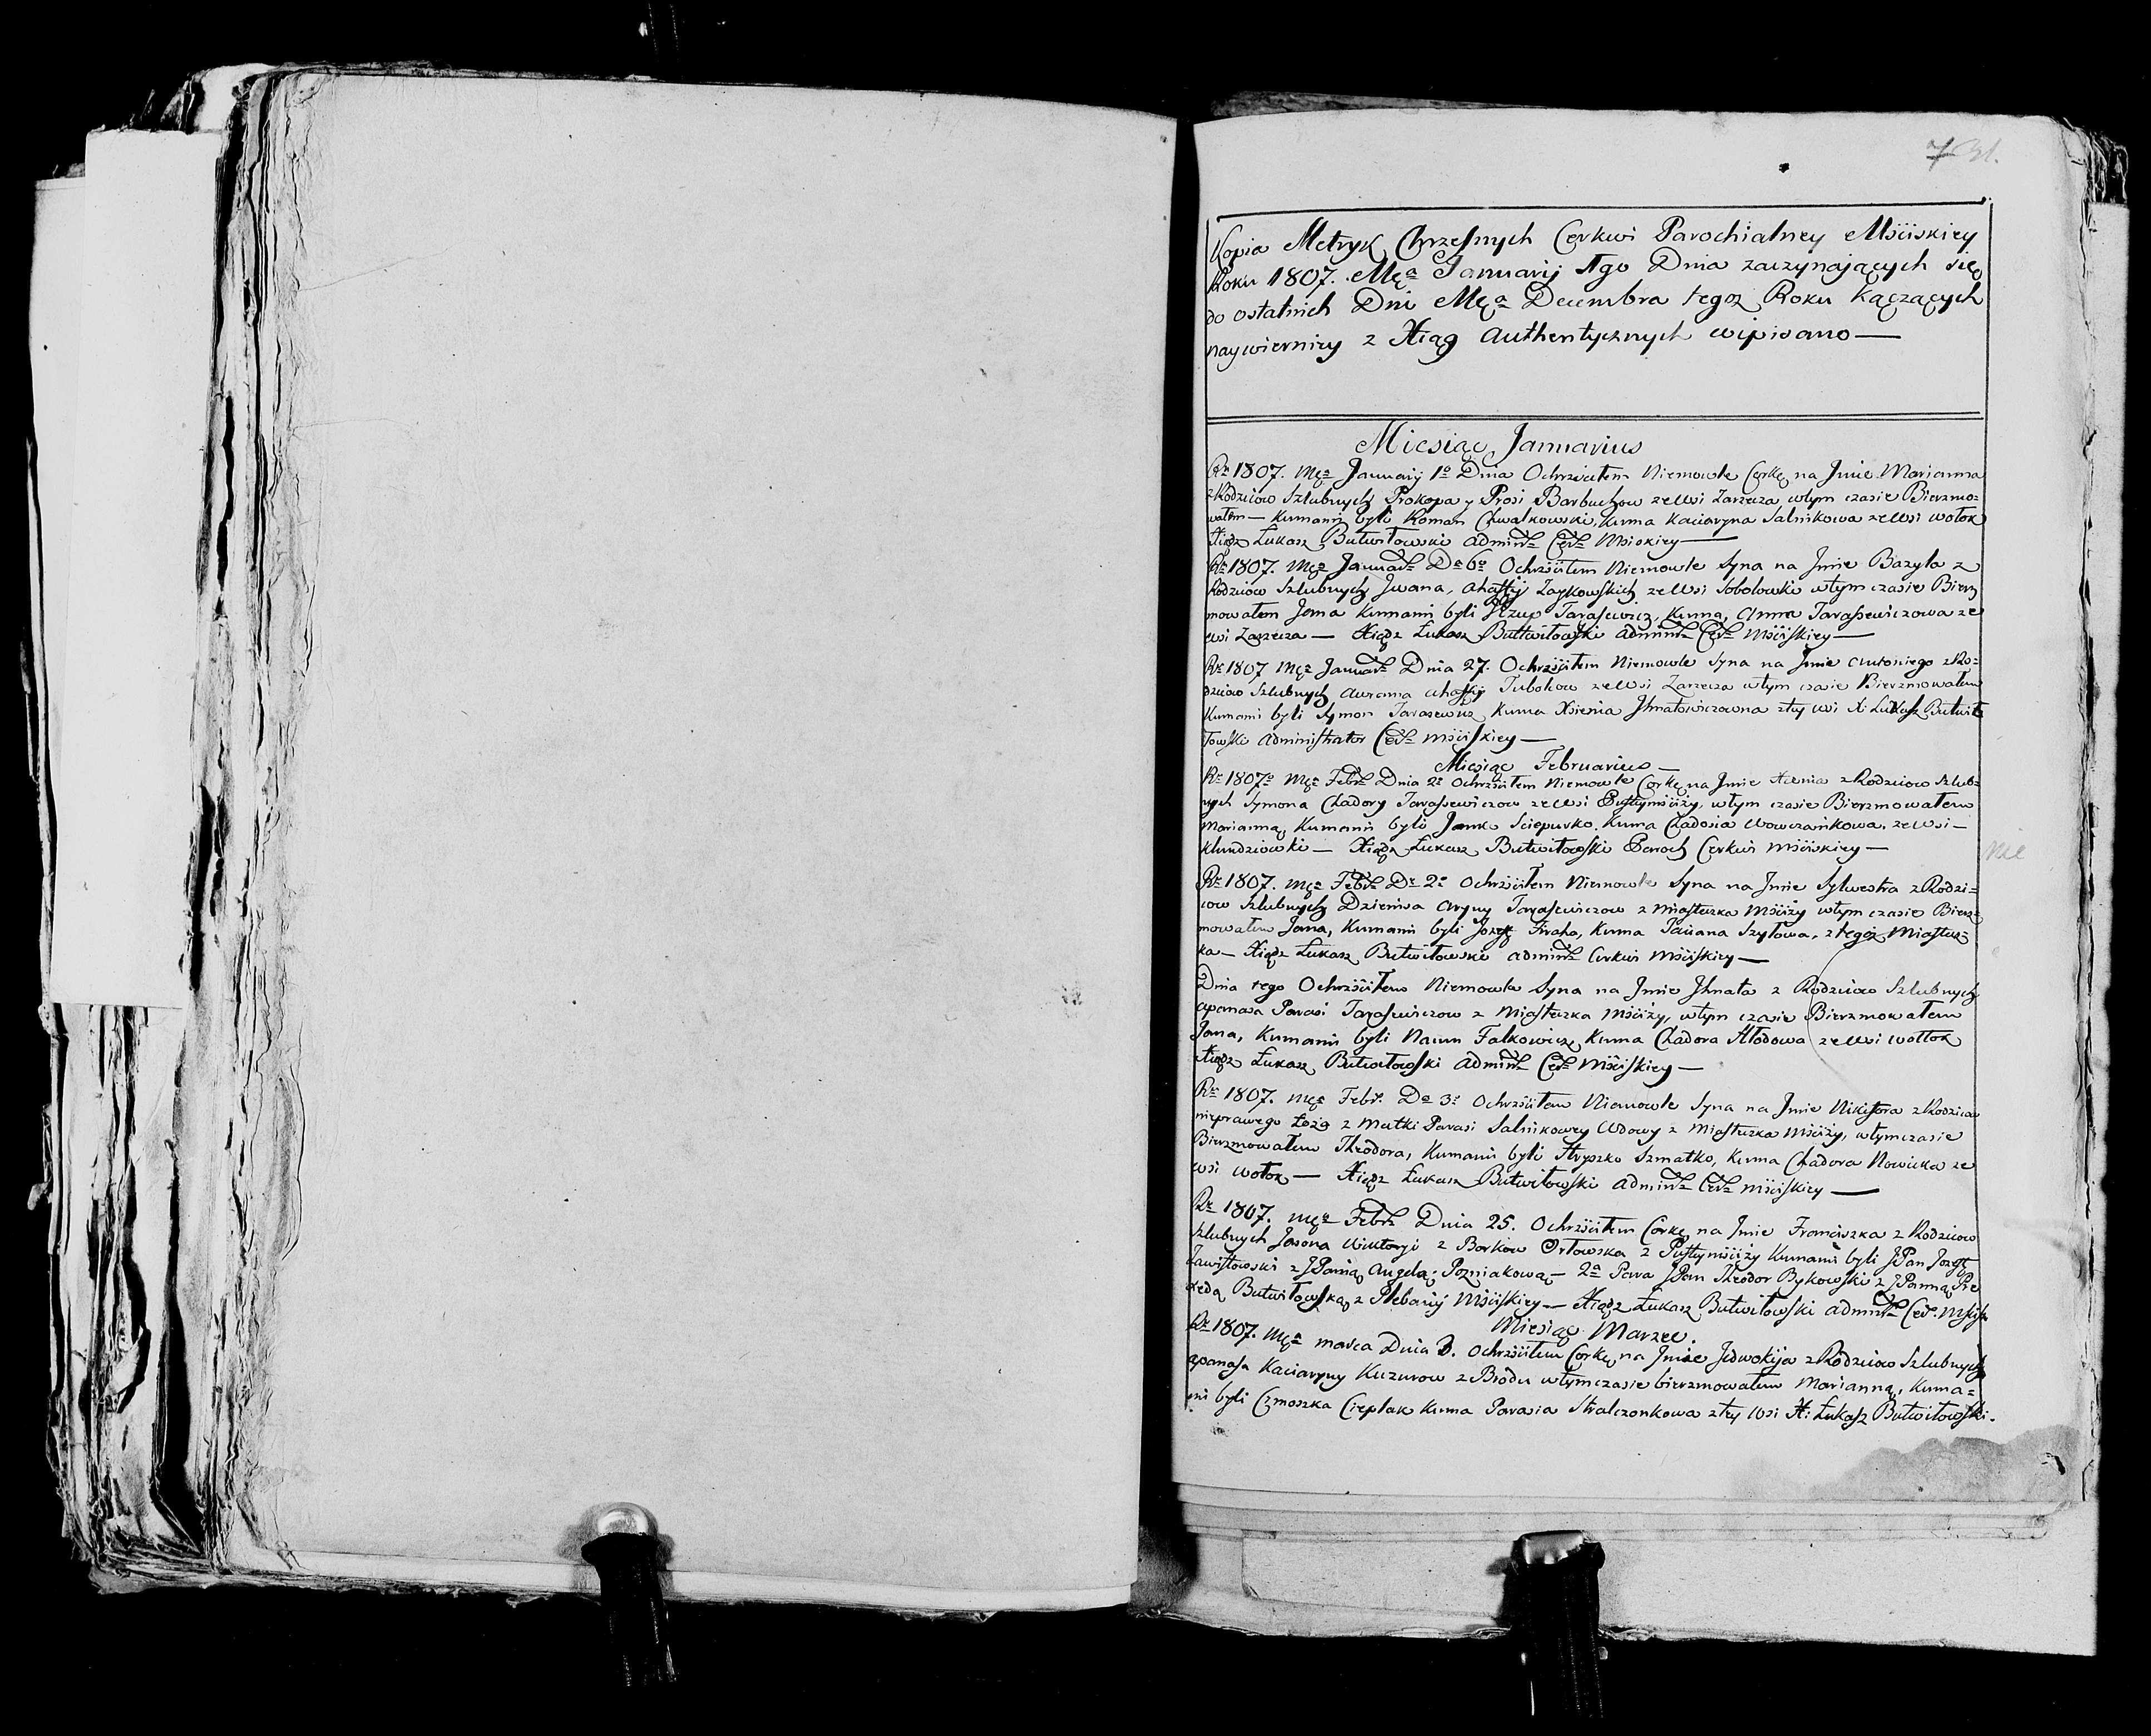 731.
Kopia Metryk Chrzesnych Cerkwi Parochialney Mściskiey
Roku 1807. Mca Januarij 1go Dnia zaczynaiących się
do ostatnich Dni Mca Decembra tegoz Roku Kączących
naywierniey z Xiąg Authentycznych wipisano —
Miesiąc Januarius
Rr 1807. Mca Januarij 1o Dnia Ochrzciłem Niemowle Corkę na Jmie Marianna
z Rodzicow Szlubnych Prokopa y Prosi Barbuchow ze Wsi Zarzecza wtym czasie Bierzmo=
wałem — Kumami byli Roman Chwalkowski, Kuma Kaciaryna Salnikowa ze Wsi Wołok
Xiądz Łukasz Butwiłowski Admin: Cer: Msciskiey —
Rr 1807. Mca Januar: D: 6o Ochrzciłem Niemowle Syna na Jmie Bazyla z
Rodzicow Szlubnych Jwana, Ahafij Zaykowskich ze Wsi Sobolowki wtym czasie Bierz
mowałem Jana Kumami byli Jozup Tarasewicz, Kuma, Anna Tarasewiczowa ze
wsi Zarzecza — Xiądz Łukasz Butwiłowski Admin: Cer: Mściskiey —
Rr 1807 Mca Januar: Dnia 27. Ochrzciłem Niemowle Syna na Jmie Antoniego z Ro=
dzicow Szlubnych Awrama Ahafij Tubolow ze Wsi Zarzecza wtym czasie Bierzmowałem
Kumami byli Symon Tarasewicz Kuma Xienia Jhnatowiczowna z tey wsi X: Łukasz Butwił
łowski Administrator Cer: Mściskiey —
Miesiąc Februarius —
Rr 1807o Mca Febr: Dnia 2o Ochrzciłem Niemowle Corkę na Jmie z Rodzicow Szlub=
nych Symona Chadory Tarasewiczow ze Wsi Pustymściży, wtym czasie Bierzmowałem
Marianną, Kumami byli Janko Sciepurko. Kuma Chadosia Wowczankowa. ze Wsi —
Klundziowki — Xiądz Łukasz Butwiłowski Paroch Cerkwi Mściskiey —
Rr 1807. Mca Febr: D: 2o Ochrzciłem Niemowle Syna na Jmie Sylwestra z Rodzi=
cow Szlubnych Dziemia Aryny Tarasewiczow z Miasteczka Mściży wtym czasie Bierz=
mowałem Jana, Kumami byli Jozef, Kuma Taciana Szyłowa, z tegoz Miastecz=
ka — Xiądz Łukasz Butwiłowski Admin: Cerkwi Mściskiey —
Dnia tego Ochrzciłem Niemowle Syna na Jmie Jhnata z Rodzicow Szlubnych
Apanasa Parasi Tarasewiczow z Miasteczka Mściży, wtym czasie Bierzmowałem
Jana, Kumami byli Naum Falkowicz, Kuma Chadora Hłodowa ze Wsi Wołłok
Xiądz Łukasz Butwiłowski Admin: Cer: Mściskiey —
Rr 1807. Mca Febr: D: 3o Ochrzciłem Niemowle Syna na Jmie Nikifora z Rodzicow
nieprawego Łoża z Matki Parasi Salnikowey Wdowy z Miasteczka Mściży, wtymczasie
Bierzmowałem Theodora, Kumami byli Hryszko Szmatko, Kuma Chadora Nowicka ze
wsi Wołok — Xiądz Łukasz Butwiłowski Admin: Cer: Mściskiey —
Rr 1807. Mca Febr: Dnia 25. Ochrzciłem Corkę na Jmie Franciszka z Rodzicow
Szlubnych Jasona Wiktoryi z Borkow Orłowska z Pustymściży Kumami byli JPan Jozef
Zawistowski z JPanią Angelą: Pozniakową — 2a Para JPan Theodor Bykowski z JPanną Pre
xedą Butwiłowską z Plebanij Mściskiey — Xiądz Łukasz Butwiłowski Admin: Cer: Mścisk
Miesiąc Marzec.
Rr 1807. Mca Marca Dnia 3. Ochrzciłem Corkę na Jmie Jewdokija z Rodzicow Szlubnych
Apanasa Kaciaryny Kuzurow z Brodu wtymczasie bierzmowałem Marianną, Kuma=
mi byli Cimoszka Cieplak Kuma Parasia Stralczonkowa z tey Wsi X: Łukasz Butwiłowski.